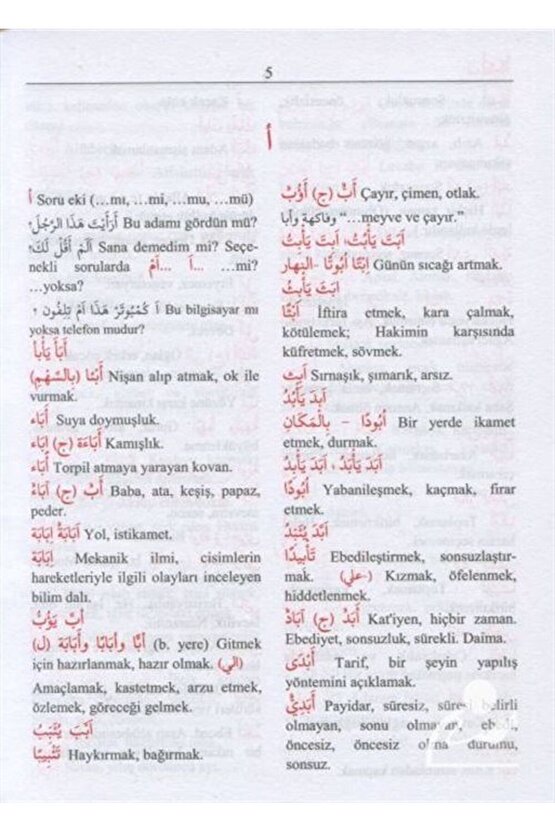 5
أ
أ Soru eki (…mı, …mi, …mu, …mü)
أَرَأَيْتَ هَذَا الرَّجُلَ؟ Bu adamı gördün mü?
أَلَمْ أَقُلْ لَكَ؟ Sana demedim mi? Seçe-
nekli sorularda أَمْ ...أ... …mi?
…yoksa?
أَ كُمْبُوتَرٌ هَذَا أَمْ تِلِفُون ؟ Bu bilgisayar mı
yoksa telefon mudur?
أَبَأَ يَأْبَأُ
أَبْئًا (بِالسَّهْمِ) Nişan alıp atmak, ok ile
vurmak.
أَبَاء Suya doymuşluk.
أَبَاءَة (ج) أَبَاء Kamışlık.
أَبَاء Torpil atmaya yarayan kovan.
أَبٌ (ج) آبَاءٌ Baba, ata, keşiş, papaz,
peder.
أَبَابَةٌ إِبَابَة Yol, istikamet.
إِبَابَة Mekanik ilmi, cisimlerin
hareketleriyle ilgili olayları inceleyen
bilim dalı.
أَبَّ يَؤُبُّ
أَبًّا وأَبَابًا وأَبَابَة (ل) (b. yere) Gitmek
için hazırlanmak, hazır olmak. (إلى)
Amaçlamak, kastetmek, arzu etmek,
özlemek, göreceği gelmek.
أَبَّبَ يُئَبِّبُ
تَئْبِيبًا Haykırmak, bağırmak.
أَبٌّ (ج) أَؤُبٌّ Çayır, çimen, otlak.
وفاكهة وأبا “…meyve ve çayır.”
أَبَتَ يَأْبُتُ، أَبِتَ يَأْبَتُ
أَبْتًا أُبُوتًا -النهار Günün sıcağı artmak.
أَبَثَ يَأْبِثُ
أَبْثًا İftira etmek, kara çalmak,
kötülemek; Hakimin karşısında
küfretmek, sövmek.
أَبِث Sırnaşık, şımarık, arsız.
أَبَدَ يَأْبُدُ
أُبُودًا – بِالْمَكَانِ Bir yerde ikamet
etmek, durmak.
أَبَدَ يَأْبُدُ ، أَبَدَ يَأْبِدُ
أُبُودًا Yabanileşmek, kaçmak, firar
etmek.
أَبَّدَ يُئَبِّدُ
تَأْبِيدًا Ebedileştirmek, sonsuzlaştır-
mak. (-على) Kızmak, öfelenmek,
hiddetlenmek.
أَبَدٌ (ج) آبَادٌ Kat'iyen, hiçbir zaman.
Ebediyet, sonsuzluk, sürekli. Daima.
أَبْدَى Tarif, bir şeyin yapılış
yöntemini açıklamak.
أَبَدِيٌّ Payidar, süresiz, süresi belirli
olmayan, sonu olmayan, ebedi,
öncesiz, öncesiz olma durumu,
sonsuz.